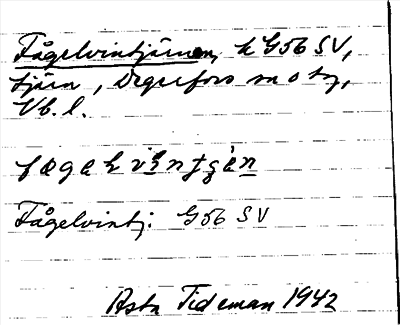 Fågelvintjärnen, k G56 SV,
tjärn, Degerfors sn o tg,
Vb. l.
Fågelvintj. G56 SV
Asta Tideman 1942